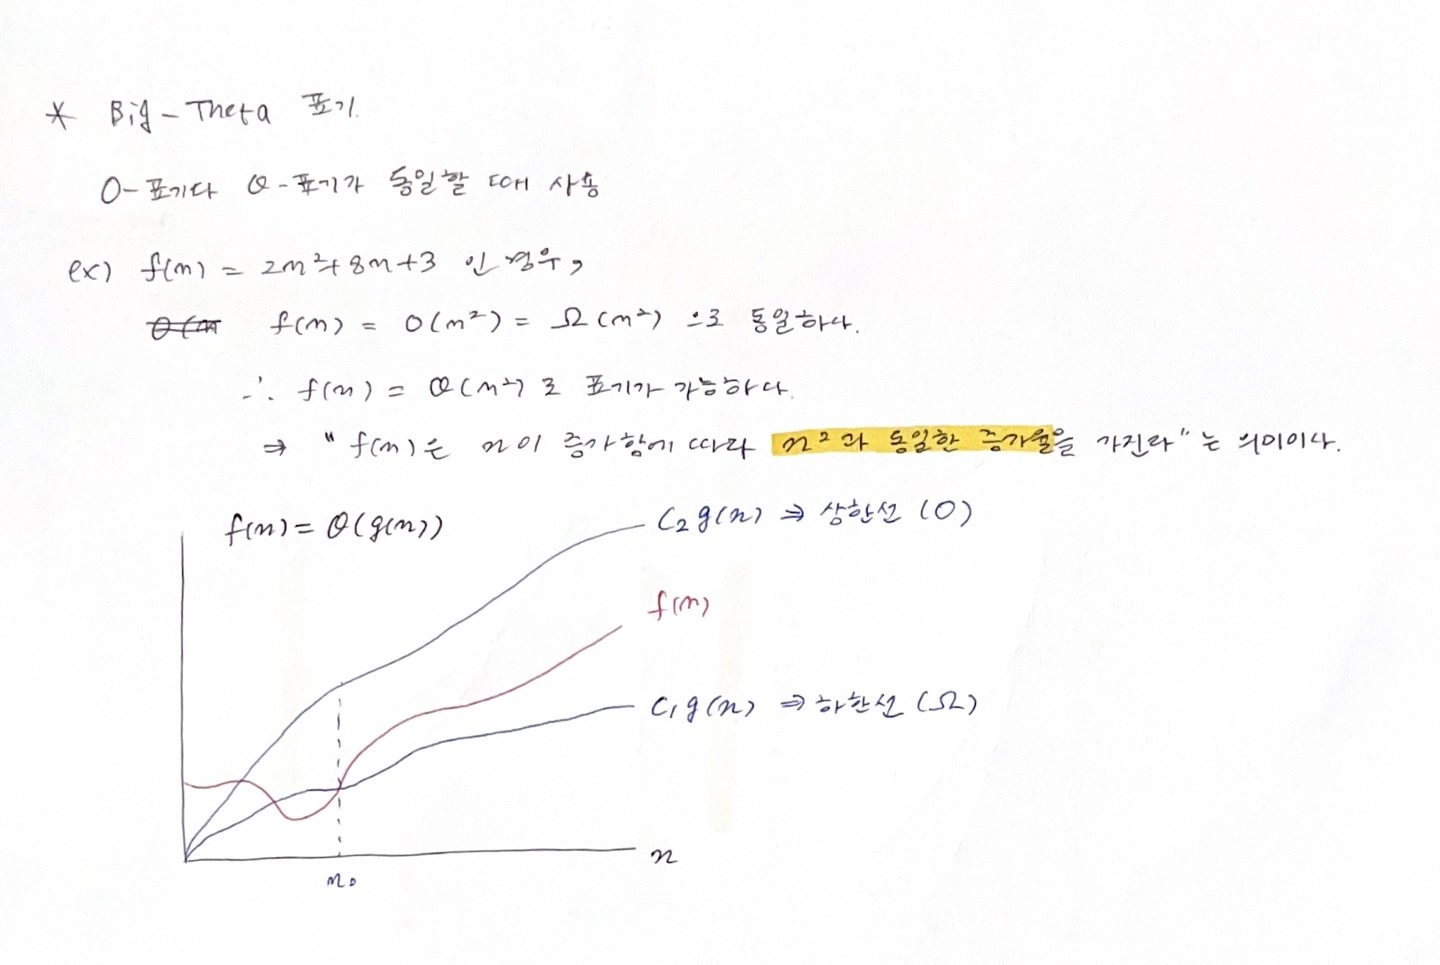 * Big-Theta 표기
O-표기다 Θ-표기가 동일할 때 사용
ex) f(n) = 2n²+8n+3 인 경우,
f(n) = O(n²) = Ω(n²) 으로 동일하다.
∴ f(n) = Θ(n²)로 표기가 가능하다.
⇒ "f(n)은 n이 증가함에 따라 n²과 동일한 증가율을 가진다"는 의미이다.
f(n) = Θ(g(n))
C₂g(n) ⇒ 상한선 (O)
f(n)
C₁g(n) ⇒ 하한선 (Ω)
n
n₀